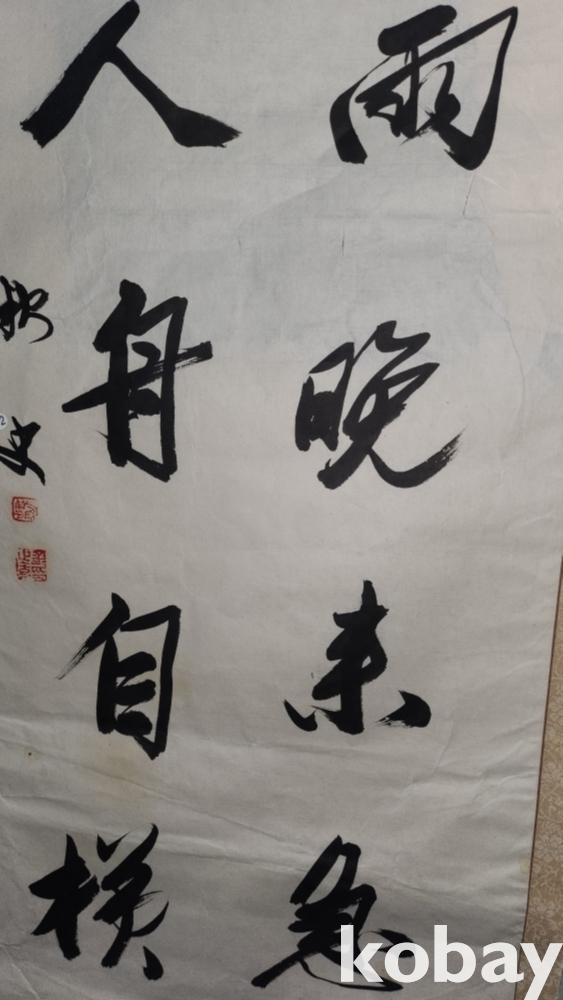 雨晚来急
人舟自横
史
2
kobay